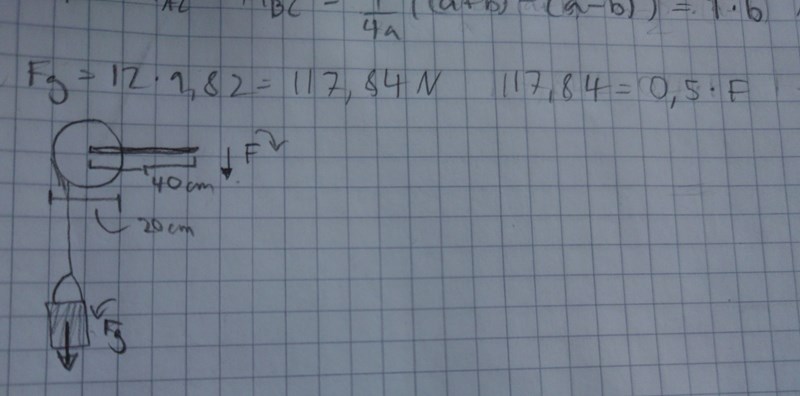 AC BC = 1/4a ((a+b) - (a-b)) = 1 · b
Fg = 12 · 9,82 = 117,84 N 117,84 = 0,5 · F
F
40cm
20cm
Fg